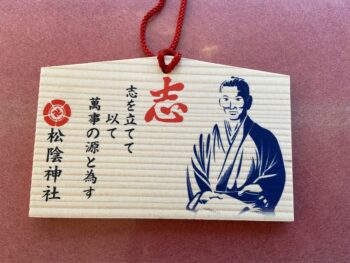 志
志を立てて
以て
萬事の源と為す
松陰神社